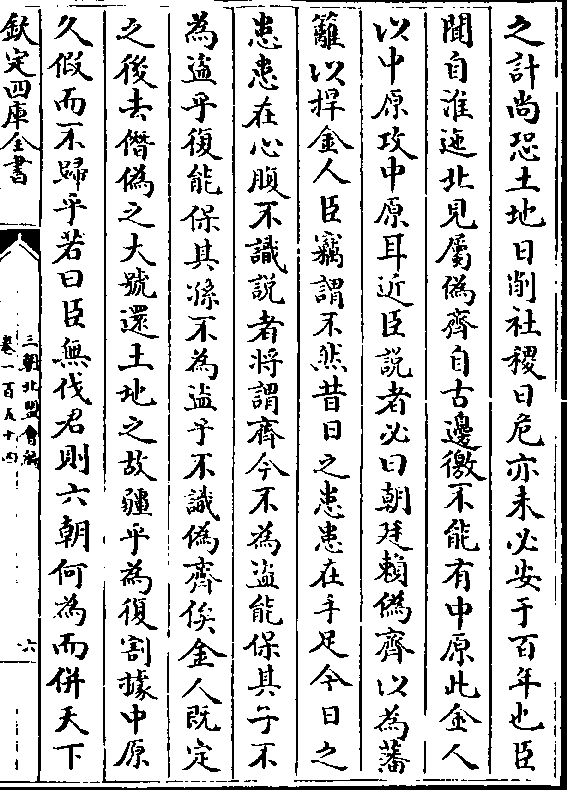 之計尚恐土地日削社稷日危亦未必安于百年也臣
聞自淮迤北見屬偽齊自古邊徼不能有中原此金人
以中原攻中原耳近臣説者必曰朝廷賴偽齊以為藩
籬以捍金人臣竊謂不然昔日之患患在手足今日之
患患在心腹不識説者將謂齊今不為盜能保其子不
為盜乎復能保其孫不為盜乎不識偽齊俟金人既定
之後去僭偽之大號還土地之故疆乎為復割據中原
久假而不歸乎若曰臣無伐君則六朝何為而併天下
欽定四庫全書
三朝北盟會編
卷一百五十四
六